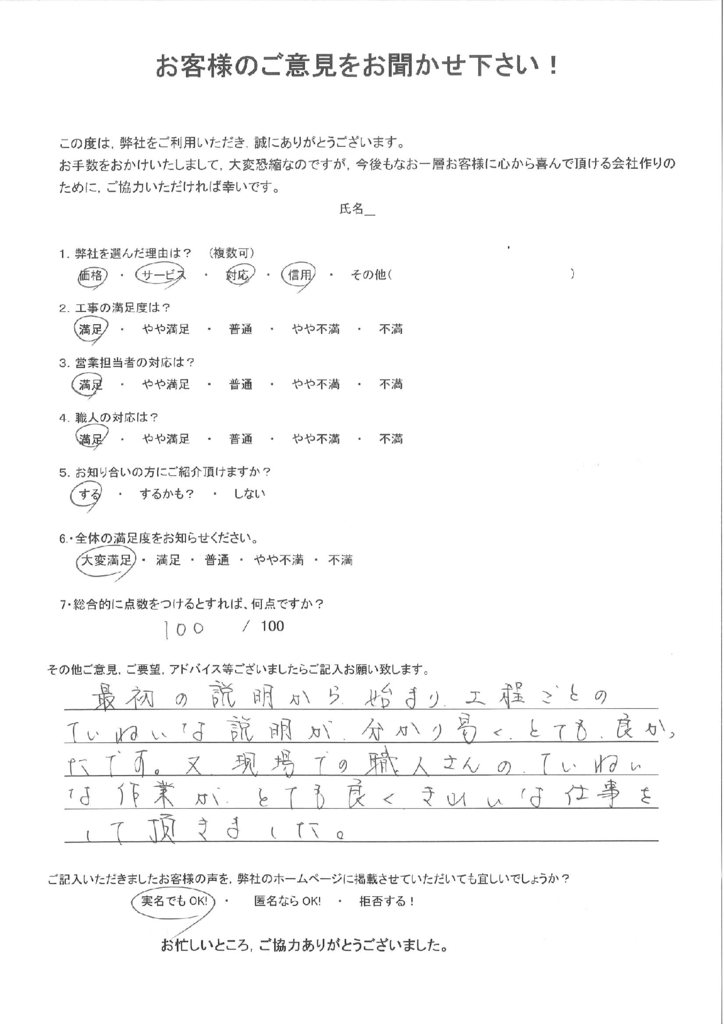 お客様のご意見をお聞かせ下さい！
この度は，弊社をご利用いただき．誠にありがとうございます。
お手数をおかけいたしまして，大変恐縮なのですが，今後もなお一層お客様に心から喜んで頂ける会社作りの
ために，ご協力いただければ幸いです。
氏名＿
1．弊社を選んだ理由は？　（複数可）
価格　・　サービス　・　対応　・　信用　・　その他（　　　　　　　　）
2．工事の満足度は？
満足　・　やや満足　・　普通　・　やや不満　・　不満
3．営業担当者の対応は？
満足　・　やや満足　・　普通　・　やや不満　・　不満
4．職人の対応は？
満足　・　やや満足　・　普通　・　やや不満　・　不満
5．お知り合いの方にご紹介頂けますか？
する　・　するかも？　・　しない
6.・全体の満足度をお知らせください。
大変満足 ・ 満足 ・ 普通 ・ やや不満 ・ 不満
7・総合的に点数をつけるとすれば、何点ですか？
100　/ 100
その他ご意見，ご要望，アドバイス等ございましたらご記入お願い致します。
最初の説明から、始まり、工程ごとの
ていねいな説明が、分かり易く、とても、良かっ
たです。又、現場での職人さんの、ていねい
な作業が、とても良くきれいな仕事を
して頂きました。
ご記入いただきましたお客様の声を，弊社のホームページに掲載させていただいても宜しいでしょうか？
実名でもOK!　・　匿名ならOK!　・　拒否する！
お忙しいところ，ご協力ありがとうございました。